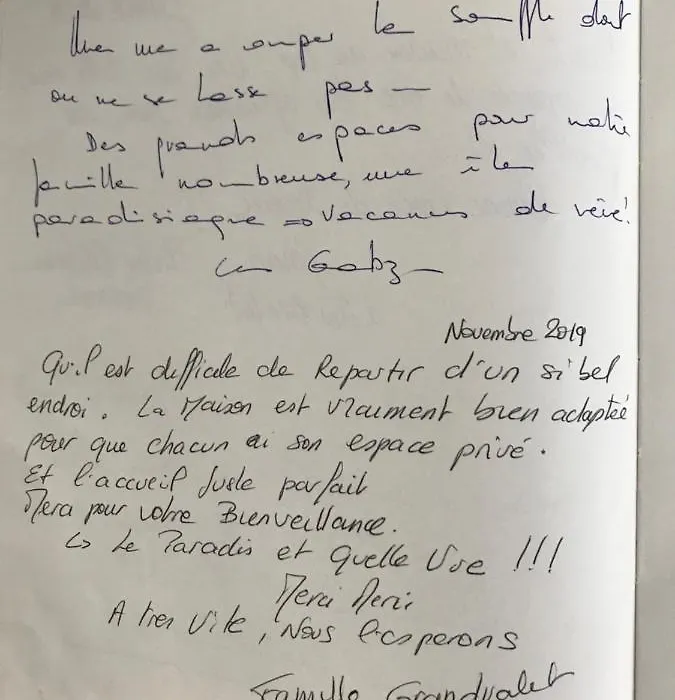 une vue à couper le souffle dont
on ne se lasse pas —
Des grands espaces pour notre
famille nombreuse, une île
paradisiaque => vacances de rêve!
Gabz
Novembre 2019
Qu'il est difficile de Repartir d'un si bel
endroi. La Maison est vraiment bien adaptéé
pour que chacun ai son espace privé.
Et l'accueil Juste parfait
Merci pour votre Bienveillance.
↳ Le Paradis et quelle Vue !!!
Merci Merci
A tres vite, Nous l'esperons
Famille Grandvalet